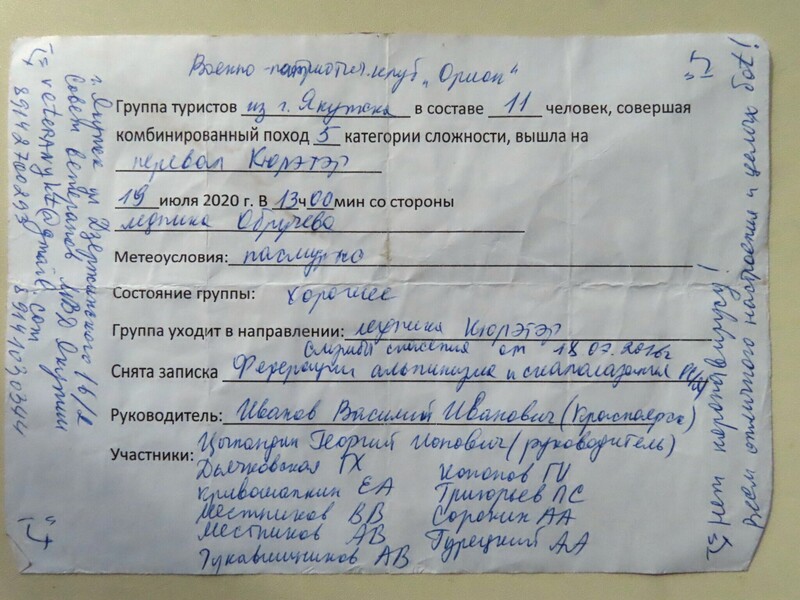 Военно-патриотич. клуб „Орион“
Группа туристов из г. Якутска в составе 11 человек, совершая
комбинированный поход 5 категории сложности, вышла на
перевал Кюрэтэр
19 июля 2020 г. В 13ч00мин со стороны
ледника Обручева
Метеоусловия: пасмурно
Состояние группы: хорошее
Группа уходит в направлении: ледника Кюрэтэр
Службы спасения от 18.07.2016г
Снята записка Федерации альпинизма и скалолазания РС(Я)
Руководитель: Иванов Василий Иванович (Красноярск)
Участники: Цыпандин Георгий Ионович (руководитель)
Дьячковская ГХ
Кривошапкин ЕА
Местников ВВ
Местников АВ
Тукавишников АВ
Кононов ГИ
Григорьев ПС
Сорокин АА
Турецкий АА
г. Якутск ул Дзержинского 16/2
Совет ветеранов МВД Якутии
89142700293 89141030344
Нет коронавирусу!
Всем отличного настроения и целых бот!